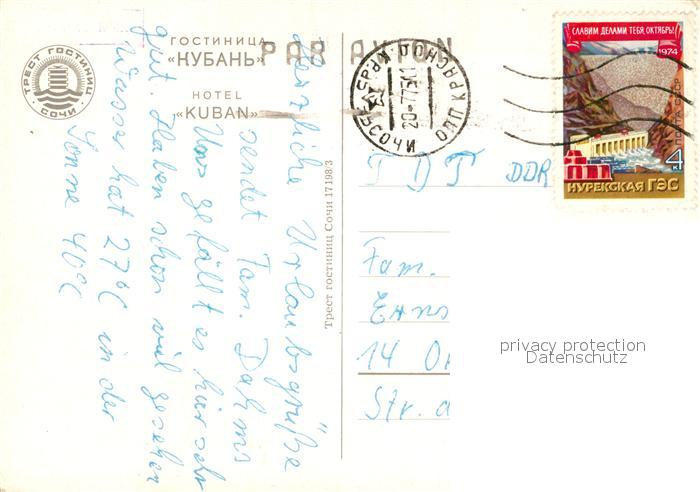 ТРЕСТ ГОСТИНИЦ
СОЧИ
ГОСТИНИЦА
«КУБАНЬ»
HOTEL
«KUBAN»
PAR AVION
СОЧИ
20-7775
СЛАВИМ ДЕЛАМИ ТЕБЯ, ОКТЯБРЬ!
1974
ПОЧТА СССР
4
К
НУРЕКСКАЯ ГЭС
Herzliche Urlaubsgrüße
sendet Fam. Dahms
Uns gefällt es hier sehr
gut. Haben schon viel gesehen
Wasser hat 27°C in der
Sonne 40°C
Трест гостиниц Сочи 17198/3
ГДР DDR
Fam.
14
Str.
privacy protection
Datenschutz